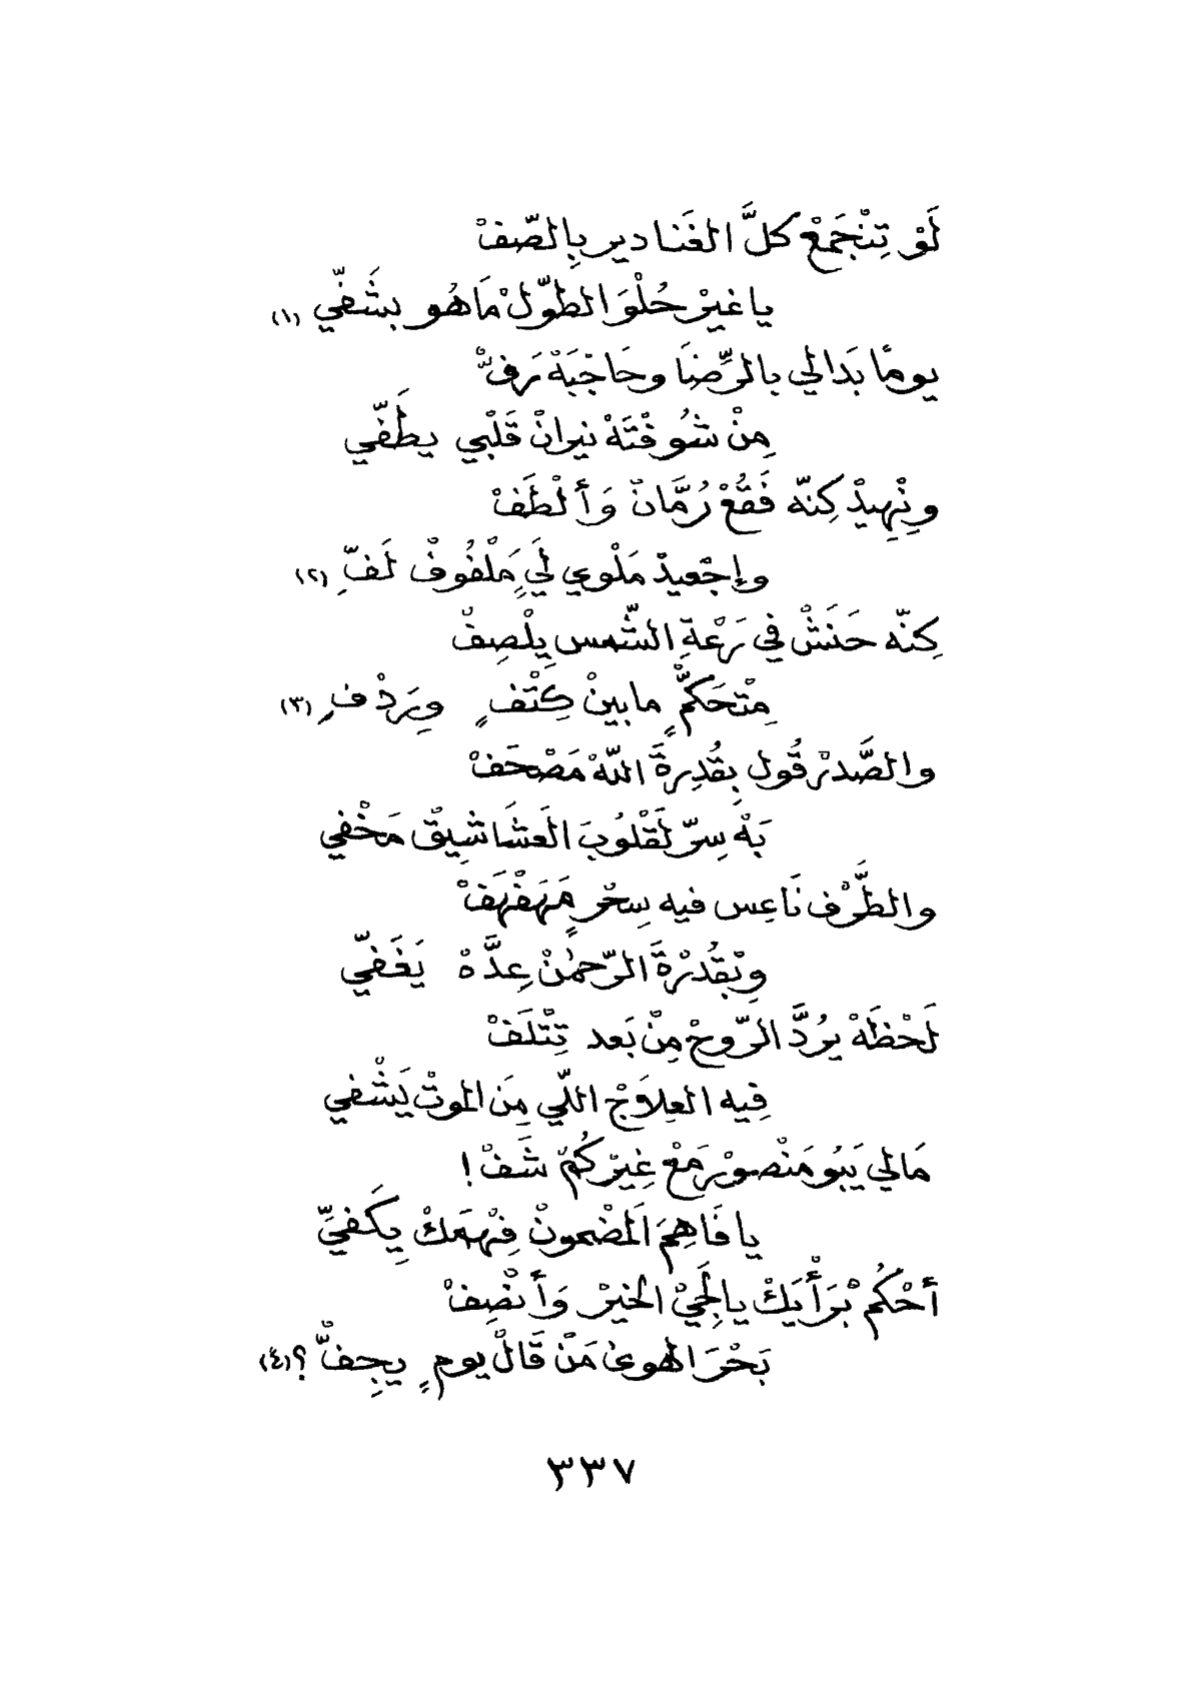 لَوْ تِنْجَمَعْ كلَّ الغَنادير بِالصّفْ
يا غيرْ حُلْوَ الطوّلْ مَاهُو بشَفّي (١)
يومًا بَدالي بالرِّضَا وحَاجْبَهْ رَفّْ
مِنْ شُوفْتَهْ نيرانْ قَلْبي يطَفّي
ونْهِيدْ كِنّه فَقْعْ رُمَّانْ وَألْطَفْ
وإجْعيدْ مَلْوي لَيٍّ مَلْفُوفْ لَفِّ (٢)
كِنّه حَنَشْ في رَعْةِ الشّمس يِلْصِفْ
مِتْحَكّمٍّ مابينْ كِتْفٍ ويَرَدْفِ (٣)
والصَّدرْ قُول بِقُدِرةَ اللّهْ مَصْحَفْ
بَهْ سِرّ لَقْلُوبَ العَشَاشيقْ مَخْفي
والطَّرْف نَاعِس فيه سِحْرٍ مَهَفْهَفْ
وبْقُدْرْةَ الرّحمٰنْ عِدَّهْ يَغَفّي
لَحْظَهْ يرُدَّ الرّوحْ مِنْ بَعد تِتْلَفْ
فِيه العِلاَجْ اللّي مِنَ الموتْ يَشْفي
مَالي يَبُو مَنْصورْ مَعْ غِيرْكُمْ شَفْ!
يا فَاهِمَ المَضْمونْ فِهْمَكْ يِكَفيِّ
أحْكُمْ بْرَأْيَكْ يالِحَيْ الخيرْ وَأنْصِفْ
بَحْرَ الهوىٰ مَنْ قَالْ يومٍ يجِفّْ؟ (٤)
٣٣٧